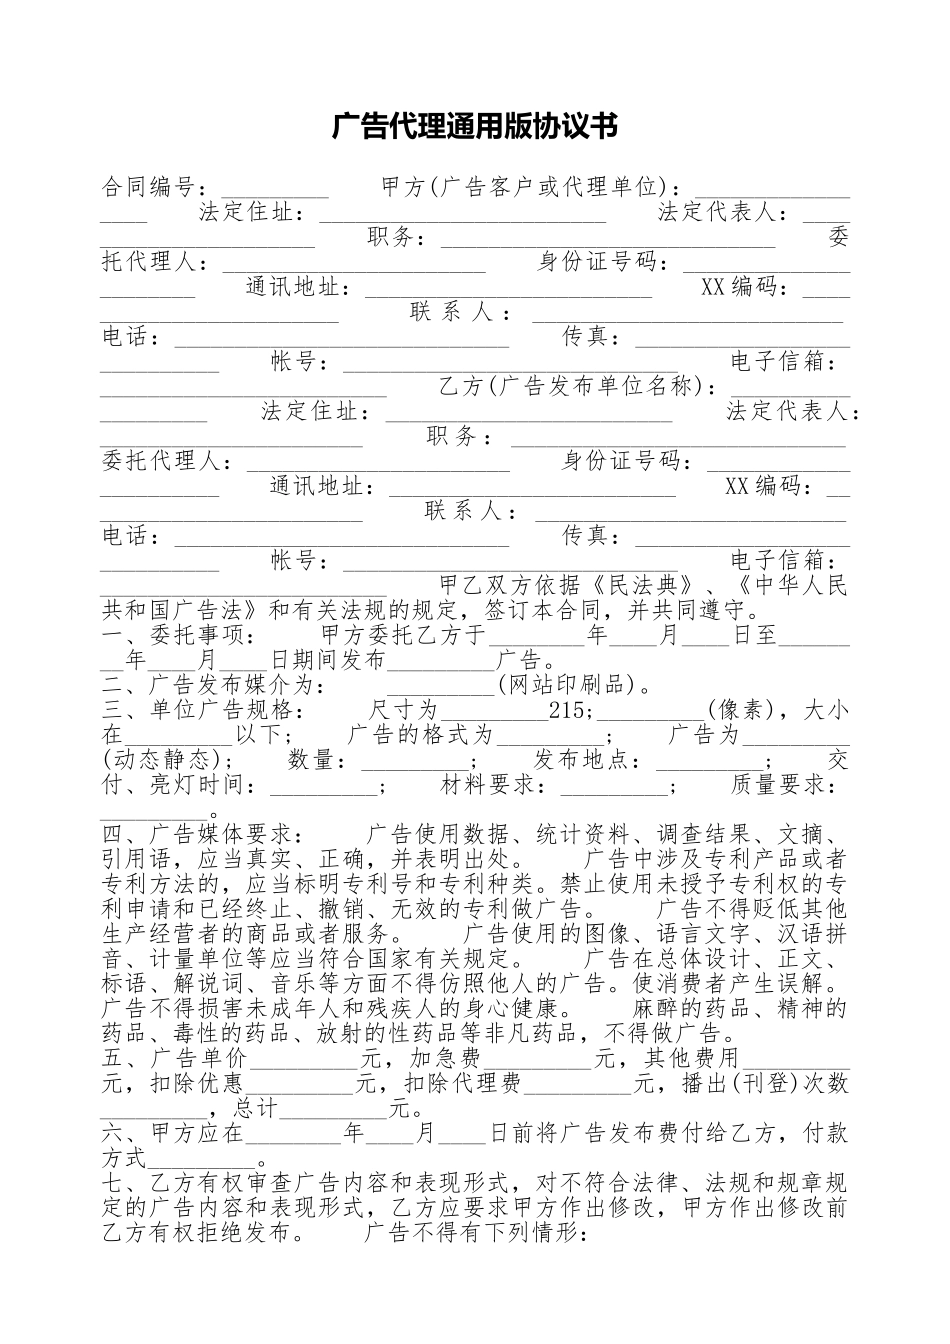 广告代理通用版协议书
合同编号：_________ 甲方(广告客户或代理单位)：_____________
____ 法定住址：________________________ 法定代表人：____
__________________ 职务：____________________________ 委
托代理人：______________________ 身份证号码：______________
________ 通讯地址：________________________ XX编码：____
____________________ 联系人：__________________________
电话：____________________________ 传真：__________________
__________ 帐号：____________________________ 电子信箱：
________________________ 乙方(广告发布单位名称)：__________
_________ 法定住址：________________________ 法定代表人：
______________________ 职务：____________________________
委托代理人：______________________ 身份证号码：____________
__________ 通讯地址：________________________ XX编码：__
______________________ 联系人：__________________________
电话：____________________________ 传真：__________________
__________ 帐号：____________________________ 电子信箱：
________________________ 甲乙双方依据《民法典》、《中华人民
共和国广告法》和有关法规的规定，签订本合同，并共同遵守。
一、委托事项： 甲方委托乙方于________年____月____日至______
__年____月____日期间发布_________广告。
二、广告发布媒介为： _________(网站印刷品)。
三、单位广告规格： 尺寸为_________215;_________(像素)，大小
在_________以下; 广告的格式为_________; 广告为_________
(动态静态); 数量：_________; 发布地点：_________; 交
付、亮灯时间：_________; 材料要求：_________; 质量要求：
_________。
四、广告媒体要求： 广告使用数据、统计资料、调查结果、文摘、
引用语，应当真实、正确，并表明出处。 广告中涉及专利产品或者
专利方法的，应当标明专利号和专利种类。禁止使用未授予专利权的专
利申请和已经终止、撤销、无效的专利做广告。 广告不得贬低其他
生产经营者的商品或者服务。 广告使用的图像、语言文字、汉语拼
音、计量单位等应当符合国家有关规定。 广告在总体设计、正文、
标语、解说词、音乐等方面不得仿照他人的广告。使消费者产生误解。
广告不得损害未成年人和残疾人的身心健康。 麻醉的药品、精神的
药品、毒性的药品、放射的性药品等非凡药品，不得做广告。
五、广告单价_________元，加急费_________元，其他费用_________
元，扣除优惠_________元，扣除代理费_________元，播出(刊登)次数
_________，总计_________元。
六、甲方应在________年____月____日前将广告发布费付给乙方，付款
方式_________。
七、乙方有权审查广告内容和表现形式，对不符合法律、法规和规章规
定的广告内容和表现形式，乙方应要求甲方作出修改，甲方作出修改前
乙方有权拒绝发布。 广告不得有下列情形：